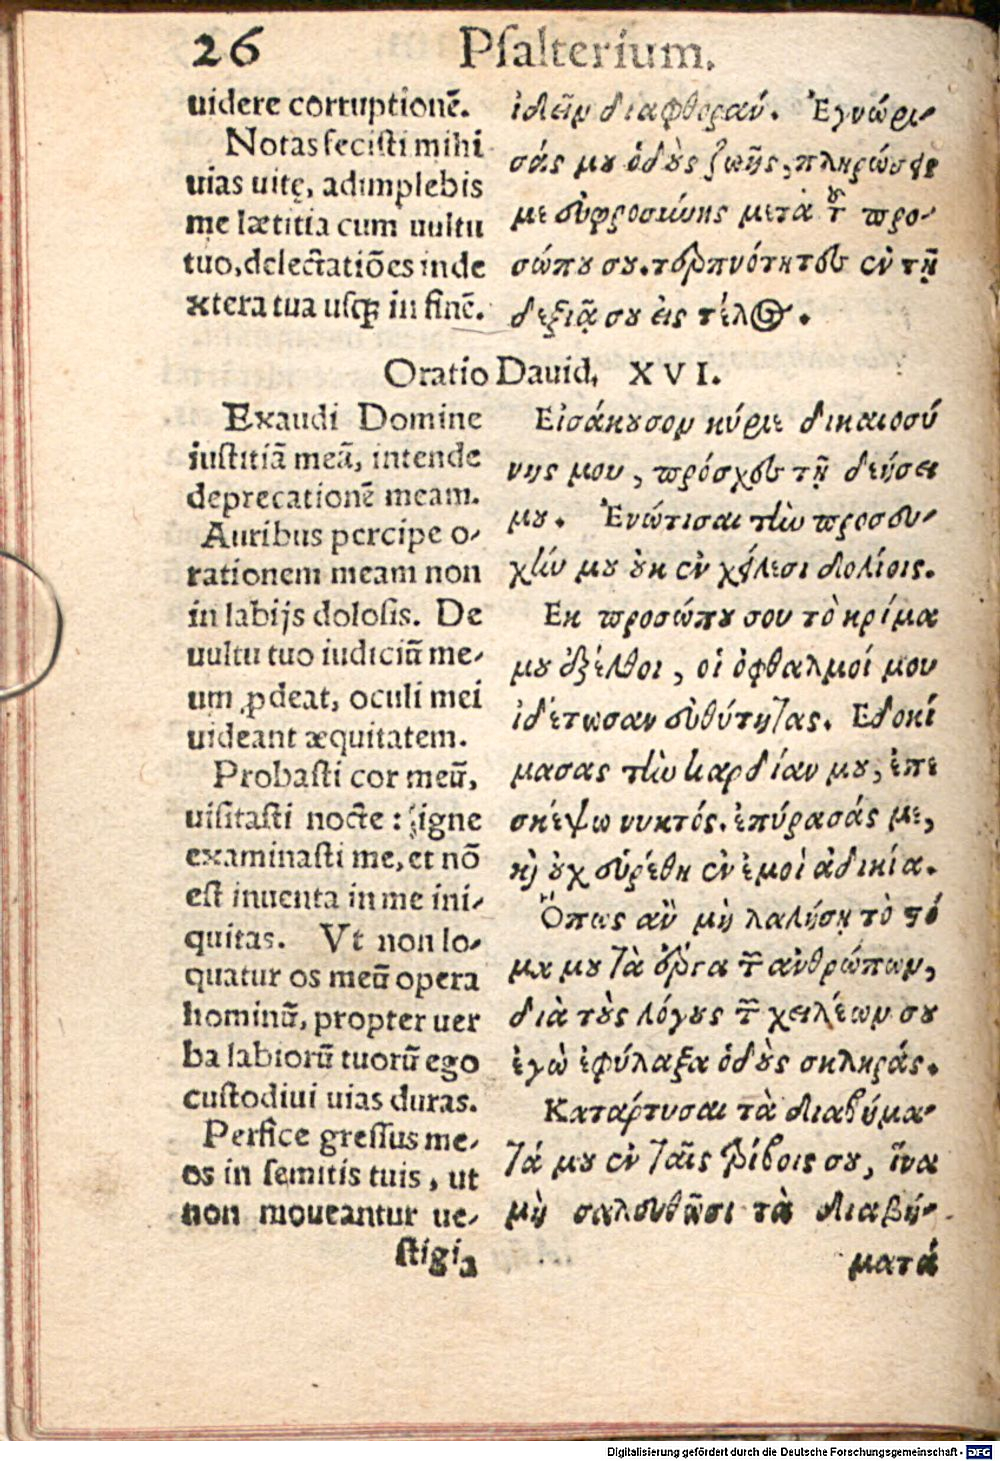 26 Psalterium.
uidere corruptionē.
Notas fecisti mihi
uias uitę, adimplebis
me lætitia cum uultu
tuo, delectatiões in de
xtera tua usq; in finē.
ἰδεῖν διαφθοράν. Ἐγνώρι-
σάς μου ὁδοὺς ζωῆς, πληρώσεις
με εὐφροσύνης μετὰ τοῦ προ-
σώπου σου. τερπνότητες ἐν τῇ
δεξιᾷ σου εἰς τέλος.
Oratio Dauid, XVI.
Exaudi Domine
iustitiā meā, intende
deprecationē meam.
Auribus percipe o-
rationem meam non
in labijs dolosis. De
uultu tuo iudiciū me-
um ꝓdeat, oculi mei
uideant æquitatem.
Probasti cor meū,
uisitasti nocte: igne
examinasti me, et nō
est inuenta in me ini-
quitas. Vt non lo-
quatur os meū opera
hominū, propter uer
ba labiorū tuorū ego
custodiui uias duras.
Perfice gressus me-
os in semitis tuis, ut
non moueantur ue-
stigia
Εἰσάκουσον κύριε δικαιοσύ
νης μου, πρόσχες τῇ δεήσει
μου. Ἐνώτισαι τὴν προσευ-
χήν μου οὐκ ἐν χείλεσι δολίοις.
Εκ προσώπου σου τὸ κρίμα
μου ἐξέλθοι, οἱ ὀφθαλμοί μου
ἰδέτωσαν εὐθύτητας. Εδοκί
μασας τὴν καρδίαν μου, ἐπε
σκέψω νυκτός. ἐπύρασάς με,
καὶ οὐχ εὑρέθη ἐν ἐμοὶ ἀδικία.
Ὅπως ἂν μὴ λαλήσῃ τὸ στό
μα μου τὰ ἔργα τῶν ἀνθρώπων,
διὰ τοὺς λόγους τῶν χειλέων σου
ἐγὼ ἐφύλαξα ὁδοὺς σκληράς.
Καταρτυσαι τὰ διαβύμα-
τά μου ἐν ταῖς τρίβοις σου, ἵνα
μὴ σαλευθῶσι τὰ διαβή-
ματά
Digitalisierung gefördert durch die Deutsche Forschungsgemeinschaft - DFG